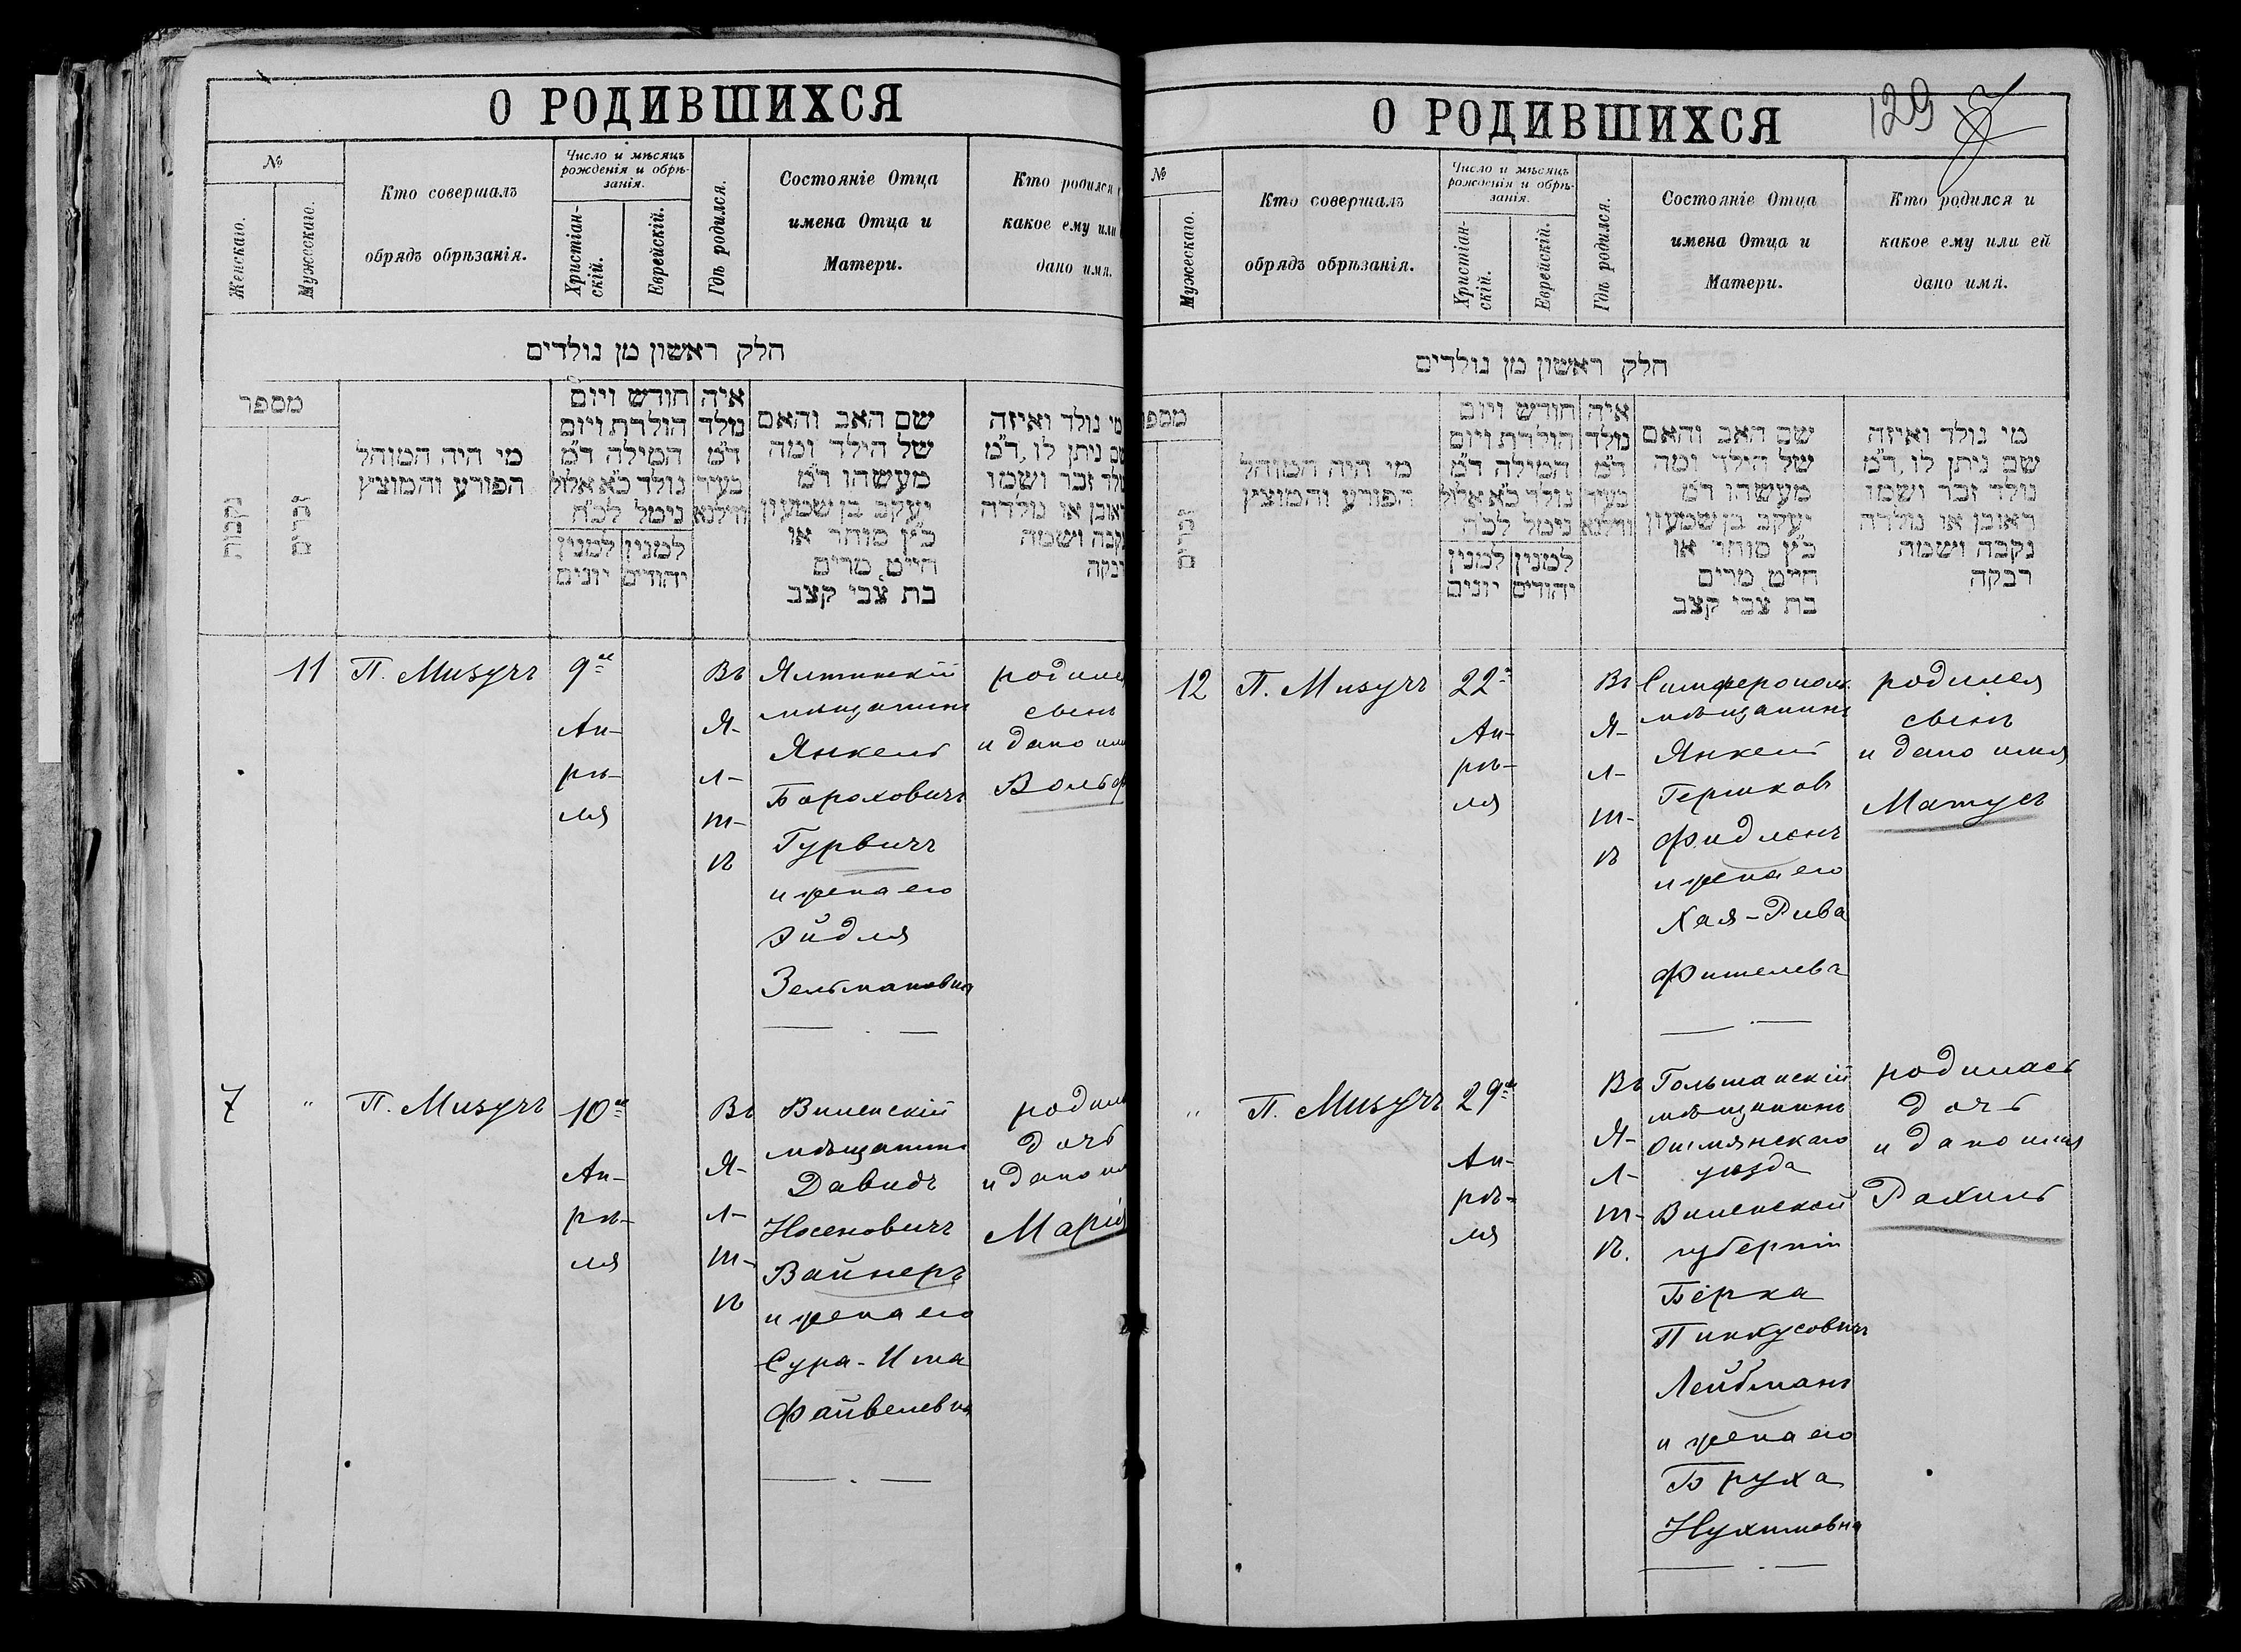 О РОДИВШИХСЯ
№
Женскаго.
Мужескаго.
Кто совершалъ
обрядъ обрѣзанія.
Число и мѣсяцъ
рожденія и обрѣ-
занія.
Христіан-
скій.
Еврейскій.
Гдѣ родился.
Состояніе Отца
имена Отца и
Матери.
Кто родился
какое ему или
дано имя.
חלק ראשון מן נולדים
מספר
נקבות
זכרים
מי היה המוהל
הפורע והמוצץ
חודש ויום
הולדת ויום
המילה ד״מ
נולד כ״א אלול
נימל לכ״ח
למנין
יונים
למנין
יהודים
איה
נולד
ד״מ
בעיר
ווילנא
שם האב והאם
של הילד ומה
מעשהו ד״מ
יעקב בן שמעון
כ״ץ סוחר או
חייט מרים
בת צבי קצב
מי נולד ואיזה
שם ניתן לו, ד״מ
נולד זכר ושמו
ראובן או נולדה
נקבה ושמה
11
П. Мизучъ
9го
Ап-
рѣ-
ля
Въ
Я-
л-
т-
ѣ
Ялтинскій
мѣщанинъ
Янкель
Бороховичъ
Гурвичъ
и жена его
Эйдля
Зельмановна
сынъ
и дано
Вольф
7
"
П. Мизучъ
10го
Ап-
рѣ-
ля
Въ
Я-
л-
т-
ѣ
Виленскій
мѣщанинъ
Давидъ
Носеновичъ
Вайнеръ
и жена его
Сура-Ита
Файвелевна
дочь
и дано
Марія
О РОДИВШИХСЯ
129
№
Мужескаго.
Кто совершалъ
обрядъ обрѣзанія.
Число и мѣсяцъ
рожденія и обрѣ-
занія.
Христіан-
скій.
Еврейскій.
Гдѣ родился.
Состояніе Отца
имена Отца и
Матери.
Кто родился и
какое ему или ей
дано имя.
חלק ראשון מן נולדים
מספ
זכרים
מי היה המוהל
הפורע והמוצץ
חודש ויום
הולדת ויום
המילה ד״מ
נולד כ״א אלול
נימל לכ״ח
למנין
יונים
למנין
יהודים
איה
נולד
ד״מ
בעיר
ווילנא
שם האב והאם
של הילד ומה
מעשהו ד״מ
יעקב בן שמעון
כ״ץ סוחר או
חייט מרים
בת צבי קצב
מי נולד ואיזה
שם ניתן לו, ד״מ
נולד זכר ושמו
ראובן או נולדה
נקבה ושמה
רבקה
12
П. Мизучъ
22го
Ап-
рѣ-
ля
Въ
Я-
л-
т-
ѣ
Симферопол.
мѣщанинъ
Янкель
Гершковъ
Фидлонъ
и жена его
Хая-Рива
Фишелевъ
родился
сынъ
и дано имя
Матусъ
"
П. Мизучъ
29го
Ап-
рѣ-
ля
Въ
Я-
л-
т-
ѣ.
Гольшанскій
мѣщанинъ
Ошмянскаго
уѣзда
Виленской
губерніи
Берка
Пинкусовичъ
Лейбманъ
и жена его
Бруха
Нухимовна
родилась
дочь
и дано имя
Рахиль